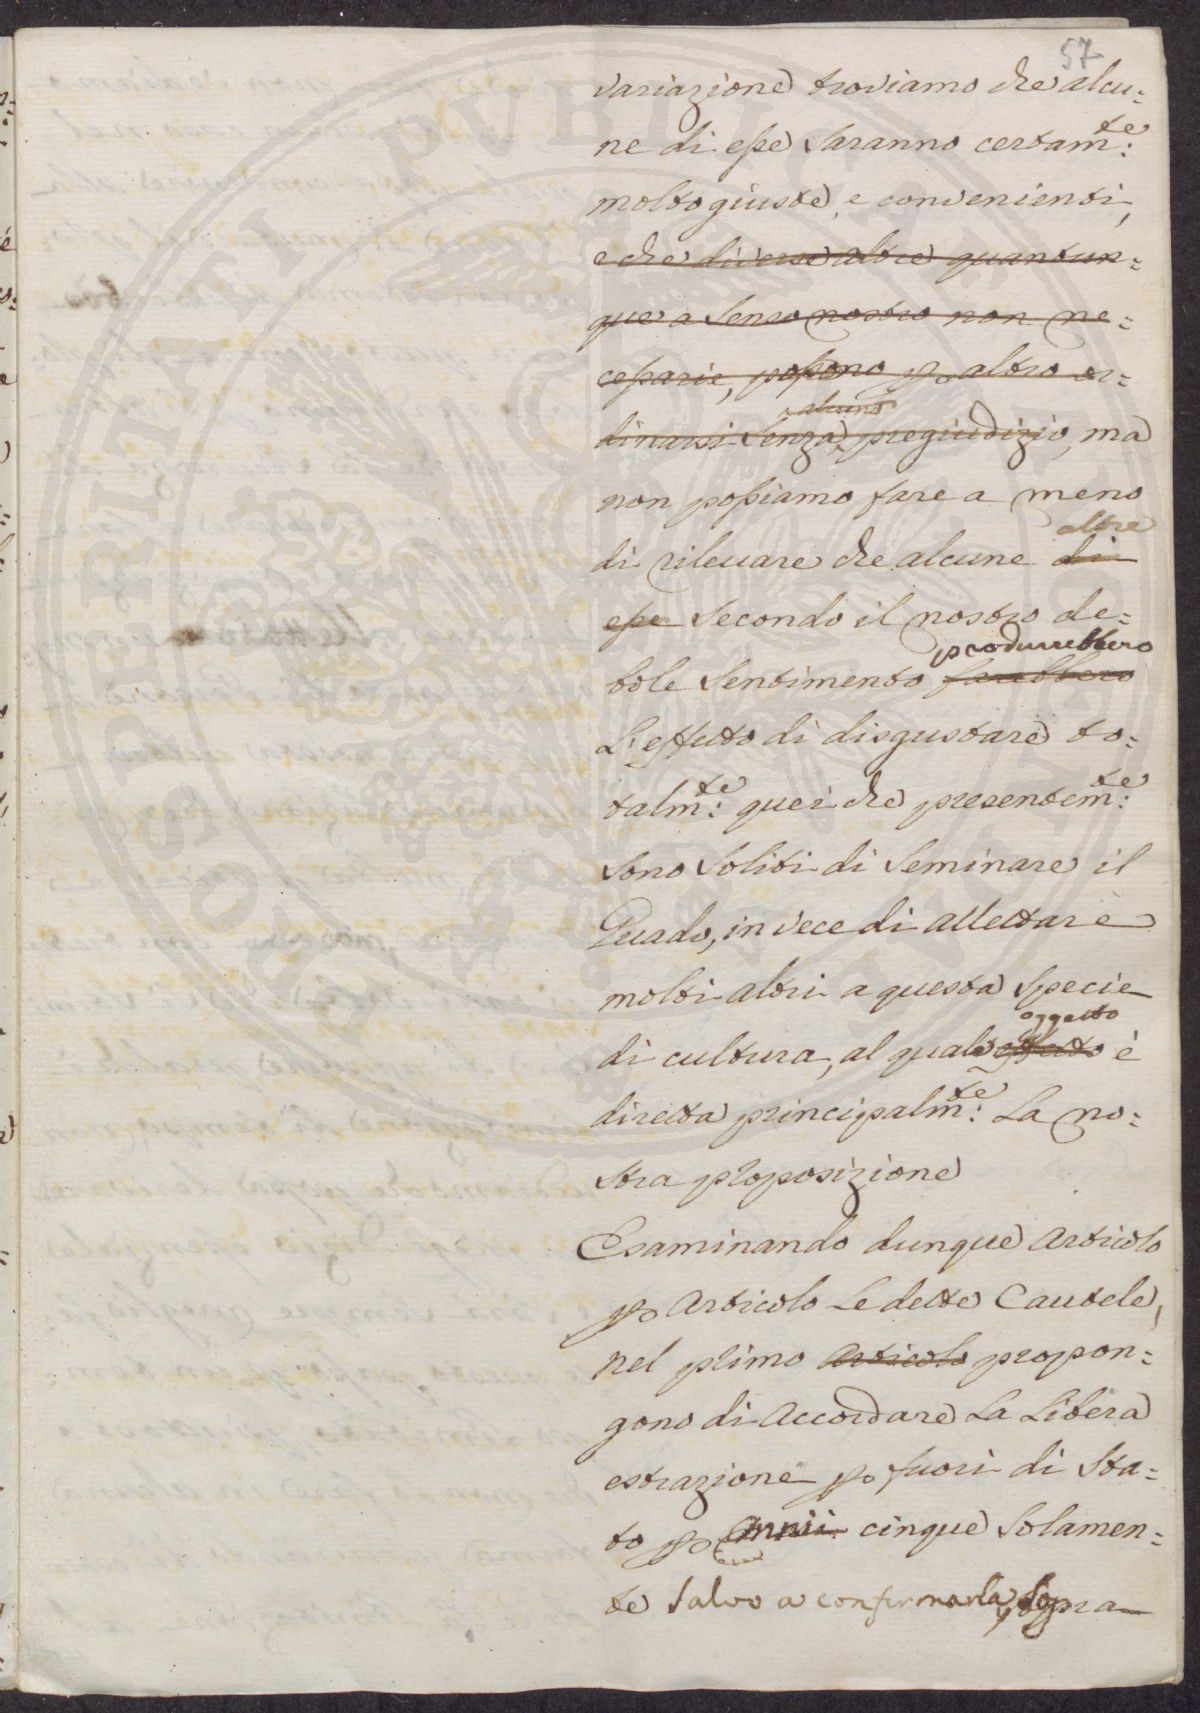 57
variazione troviamo che alcu=
ne di esse saranno certam:te
molto giuste, e convenienti,
e che diverse altre quantun=
que a senso nostro non ne=
cessarie, possono po altro or=
alcuno
dinarsi senza pregiudizio, ma
non possiamo fare a meno
altre
di rilevare che alcune di
esse secondo il nostro de=
produrrebbero
bole sentimento farebbero
L'effetto di disgustare to=
talm:te quei che presentem:te
sono soliti di seminare il
Guado, in vece di allettare
molti altri a questa specie
oggetto
di cultura, al quale effetto è
diretta principalm:te La no=
stra proposizione
Esaminando dunque Articolo
po Articolo Le dette Cautele,
nel primo Articolo propon=
gono di Accordare La Libera
estrazione po fuori di Sta=
to po Anni cinque solamen=
te salvo a confirmarla, sopra